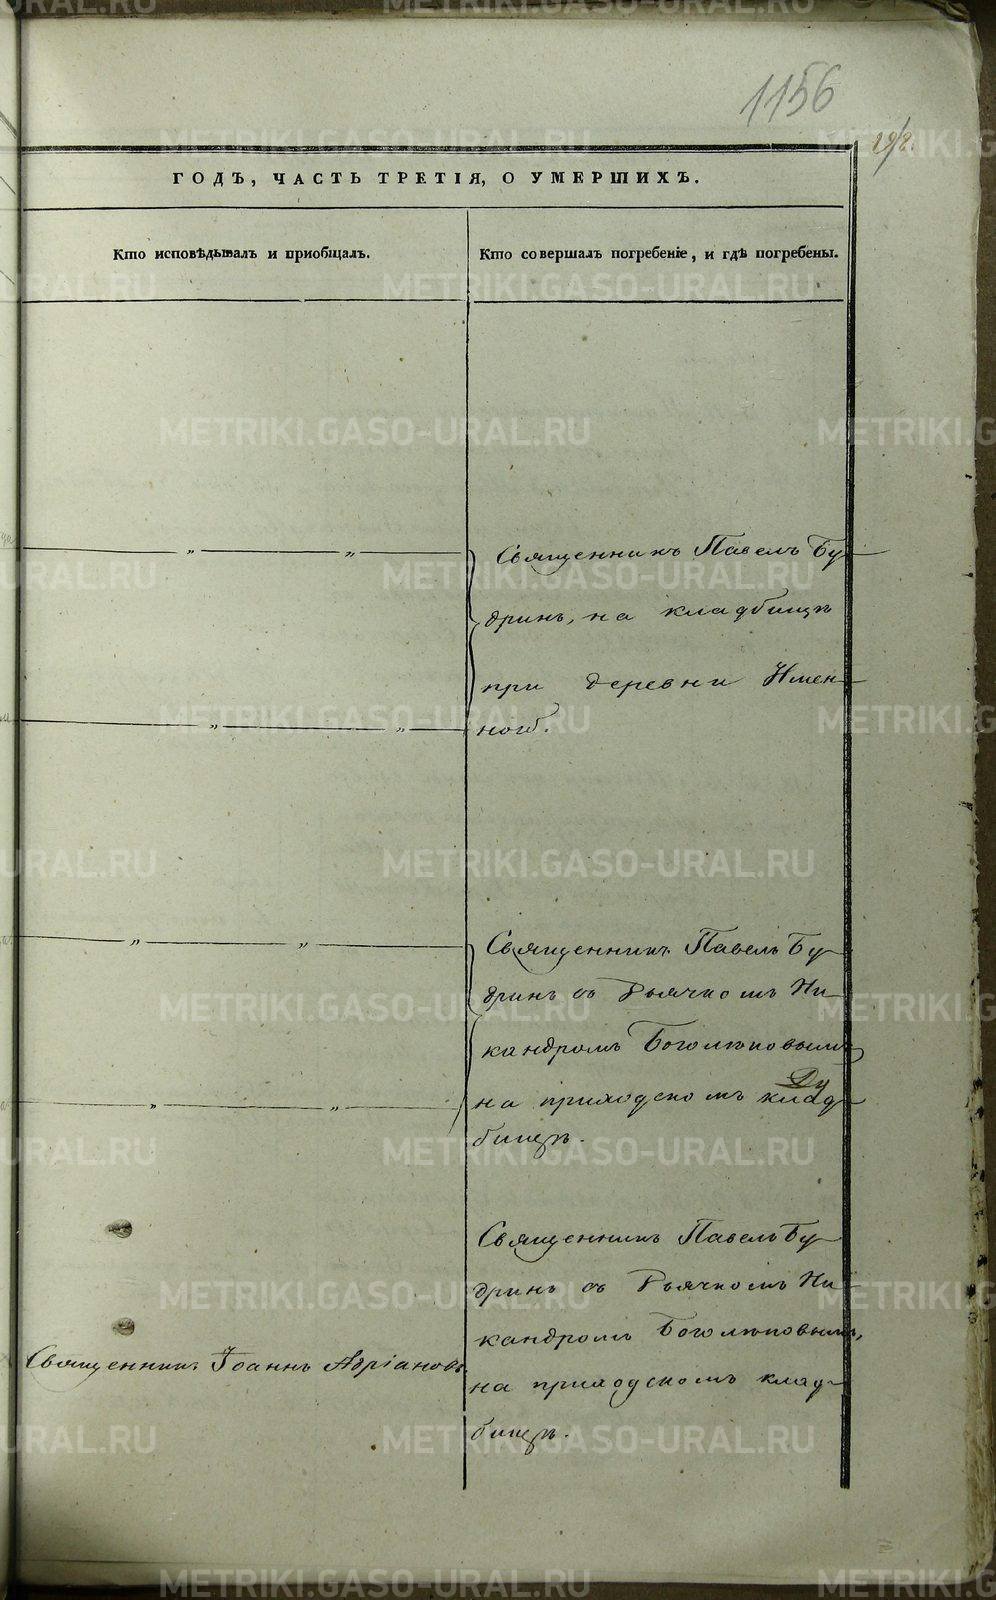 1156
ГОДЪ, ЧАСТЬ ТРЕТІЯ, О УМЕРШИХЪ.
Кто исповѣдывалъ и пріобщалъ.
Кто совершалъ погребеніе, и гдѣ погребены.
" "
Священникъ Павелъ Бу-
дринъ, на кладбищѣ
при деревни Имен-
ной.
" "
" "
Священникъ Павелъ Бу-
дринъ съ Дьячкомъ Ни-
кандромъ Боголюповымъ
Ду
на приходскомъ клад-
бищѣ.
" "
Священникъ Іоаннъ Адріановъ.
Священникъ Павелъ Бу-
дринъ съ Дьячкомъ Ни-
кандромъ Боголюповымъ,
на приходскомъ клад-
бищѣ.
METRIKI.GASO-URAL.RU